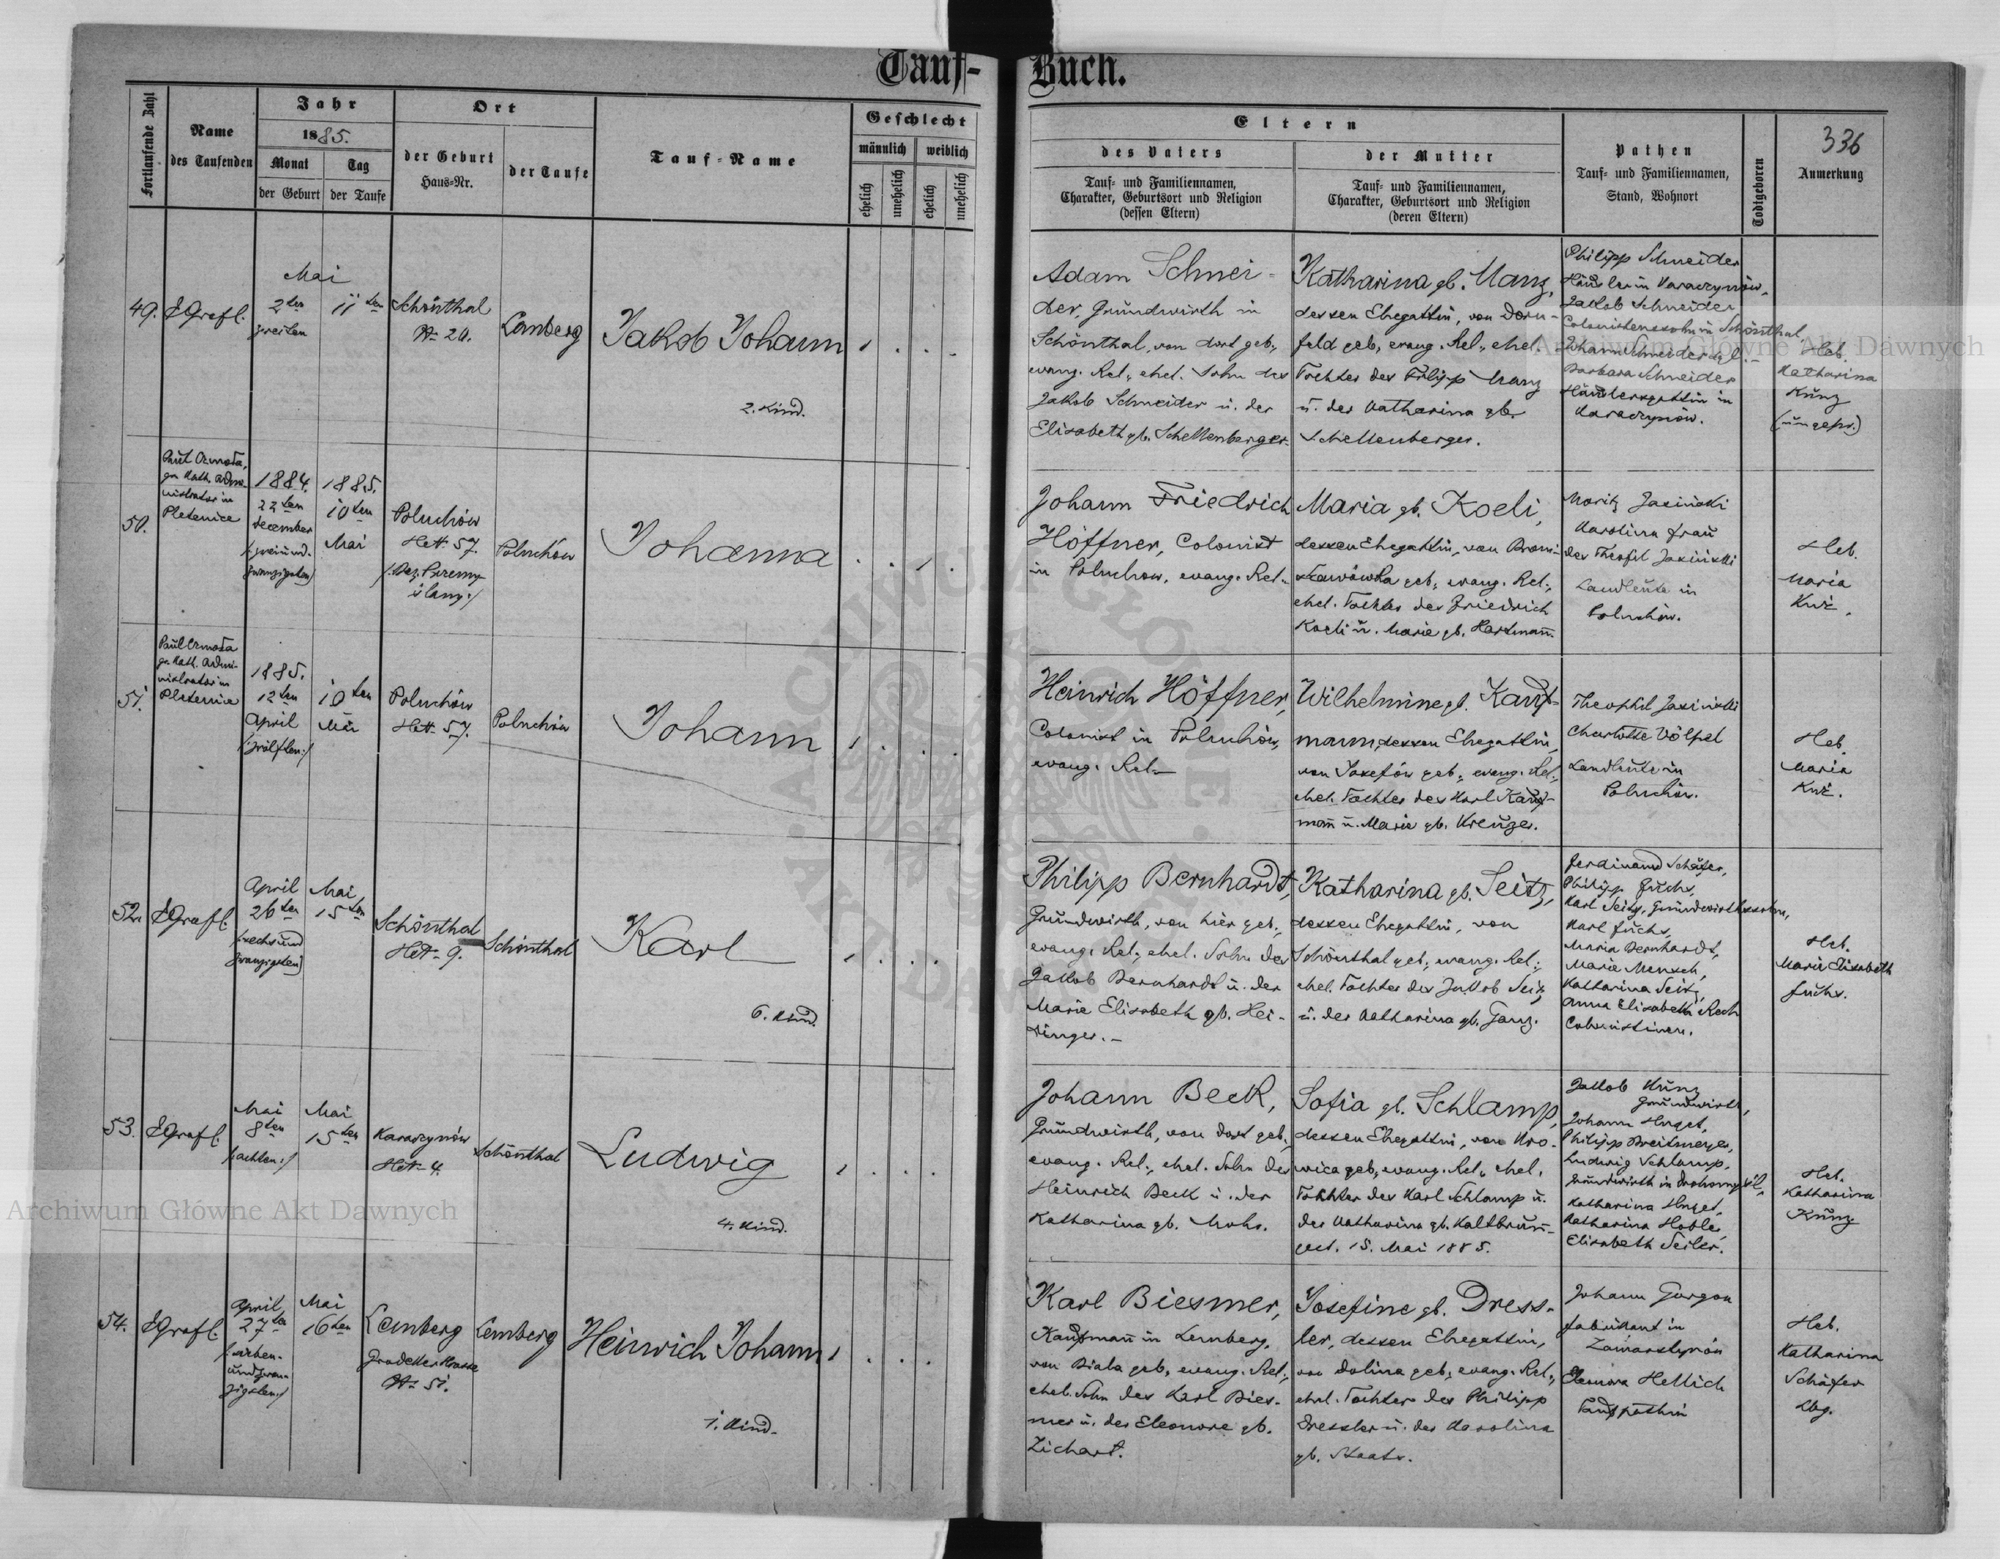 Tauf-Buch.
Fortlaufende Zahl
Name
des Taufenden
Jahr
1885.
Monat
Tag
der Geburt
der Taufe
Ort
der Geburt
Haus-Nr.
der Taufe
Tauf-Name
Geschlecht
männlich
weiblich
ehelich
unehelich
ehelich
unehelich
Eltern
des Vaters
Tauf- und Familiennamen,
Charakter, Geburtsort und Religion
(dessen Eltern)
der Mutter
Tauf- und Familiennamen,
Charakter, Geburtsort und Religion
(deren Eltern)
Pathen
Tauf- und Familiennamen,
Stand, Wohnort
Todtgeboren
336
Anmerkung
49.
Mai
2ten
zweiten
11ten
Schönthal
Nr 20.
Lemberg
Jakob Johann
2. Kind.
Adam Schnei-
der, Grundwirth in
Schönthal, von dort geb.,
evang. Rel., ehel. Sohn des
Jakob Schneider u. der
Elisabeth gb. Schellenberger.
Katharina gb. Manz,
dessen Ehegattin, von Dorn-
feld geb., evang. Rel., ehel.
Tochter des Filipp Manz
u. der Katharina gb.
Schellenberger.
Philipp Schneider
Händler in Karaczynów,
Jakob Schneider
Colonistensohn in Schönthal,
Johann Schneider
Barbara Schneider
Händlersgattin in
Karaczynów.
Heb.
Katharina
Kunz
(ungepr.)
50.
nistrator in
Pletenice
1884.
22ten
December
(zweiund-
zwanzigsten)
1885.
10ten
Mai
Poluchów
HNr. 57.
(Bez. Przemy
slany:)
Poluchów
Johanna
Johann Friedrich
Höffner, Colonist
in Poluchow, evang. Rel.
Maria gb. Koeli,
dessen Ehegattin, von
geb., evang. Rel.,
ehel. Tochter des Friedrich
Koeli u. Marie gb. Hartmann.
Moritz Jasinski
Karolina Frau
des Theofil Jasinski
Landleute in
Poluchów.
Heb.
Maria
51.
nistrator in
Pletenice
1885.
12ten
April
(zwölften:)
10ten
Mai
Poluchów
HNr. 57.
Poluchów
Johann
Heinrich Höffner,
Colonist in Poluchów,
evang. Rel.
Wilhelmine gb. Kauf-
mann, dessen Ehegattin,
von Josefów geb., evang. Rel.,
ehel. Tochter des Karl Kauf-
mann u. Marie gb. Kreuzer.
Theophil Jasinski
Charlotte Völpel
Landleute in
Poluchów.
Heb.
Maria
52.
April
26ten
(sechsund
zwanzigsten)
Mai
15ten
Schönthal
HNr. 9.
Schönthal
Karl
6. Kind.
Philipp Bernhardt,
Grundwirth, von hier geb.,
evang. Rel., ehel. Sohn des
Jakob Bernhardt u. der
Marie Elisabeth gb. Hei-
dinger.
Katharina gb. Seitz,
dessen Ehegattin, von
Schönthal geb., evang. Rel.,
ehel. Tochter des Jakob Seitz
u. der Katharina gb. Ganz.
Ferdinand Schäfer,
Philipp Fuchs,
Karl Seitz, Grundwirthssohn,
Karl Fuchs,
Maria Bernhardt,
Marie Mensch,
Katharina Seitz,
Anna Elisabeth Rech
Colonistinen.
Heb.
Marie Elisabeth
Fuchs.
53.
Mai
8ten
(achten:)
Mai
15ten
Karaczynów
HNr. 4.
Schönthal
Ludwig
4. Kind.
Johann Beck,
Grundwirth, von dort geb.,
evang. Rel., ehel. Sohn des
Heinrich Beck u. der
Katharina gb. Mohr.
Sofia gb. Schlamp,
dessen Ehegattin, von Kro-
wica geb., evang. Rel., ehel.
Tochter des Karl Schlamp u.
der Katharina gb. Kaltbrunn-
gest. 15. Mai 1885.
Jakob Kunz
Grundwirth,
Johann Huget,
Philipp Breitmeyer,
Ludwig Schlamp,
Grundwirth in
Katharina Huget,
Katharina
Elisabeth Seiler.
Heb.
Katharina
Kunz
54.
April
27ten
(sieben-
undzwan-
zigsten:)
Mai
16ten
Lemberg
Grodeker Strasse
Nr 51.
Lemberg
Heinrich Johann
1. Kind.
Karl Biesmer,
Kaufmann in Lemberg,
von Biala geb., evang. Rel.,
ehel. Sohn des Karl Bies-
mer u. der Eleonore gb.
Zichart.
Josefine gb. Dress-
ler, dessen Ehegattin,
von Dolina geb., evang. Rel.,
ehel. Tochter des Philipp
Dressler u. der Karolina
gb. Staats.
Johann Gorgon
Fabrikant in
Zamarstynów
Eleonora Hellich
Taufpathin
Heb.
Katharina
Schäfer
Lbg.
Archiwum Główne Akt Dawnych
Archiwum Główne Akt Dawnych